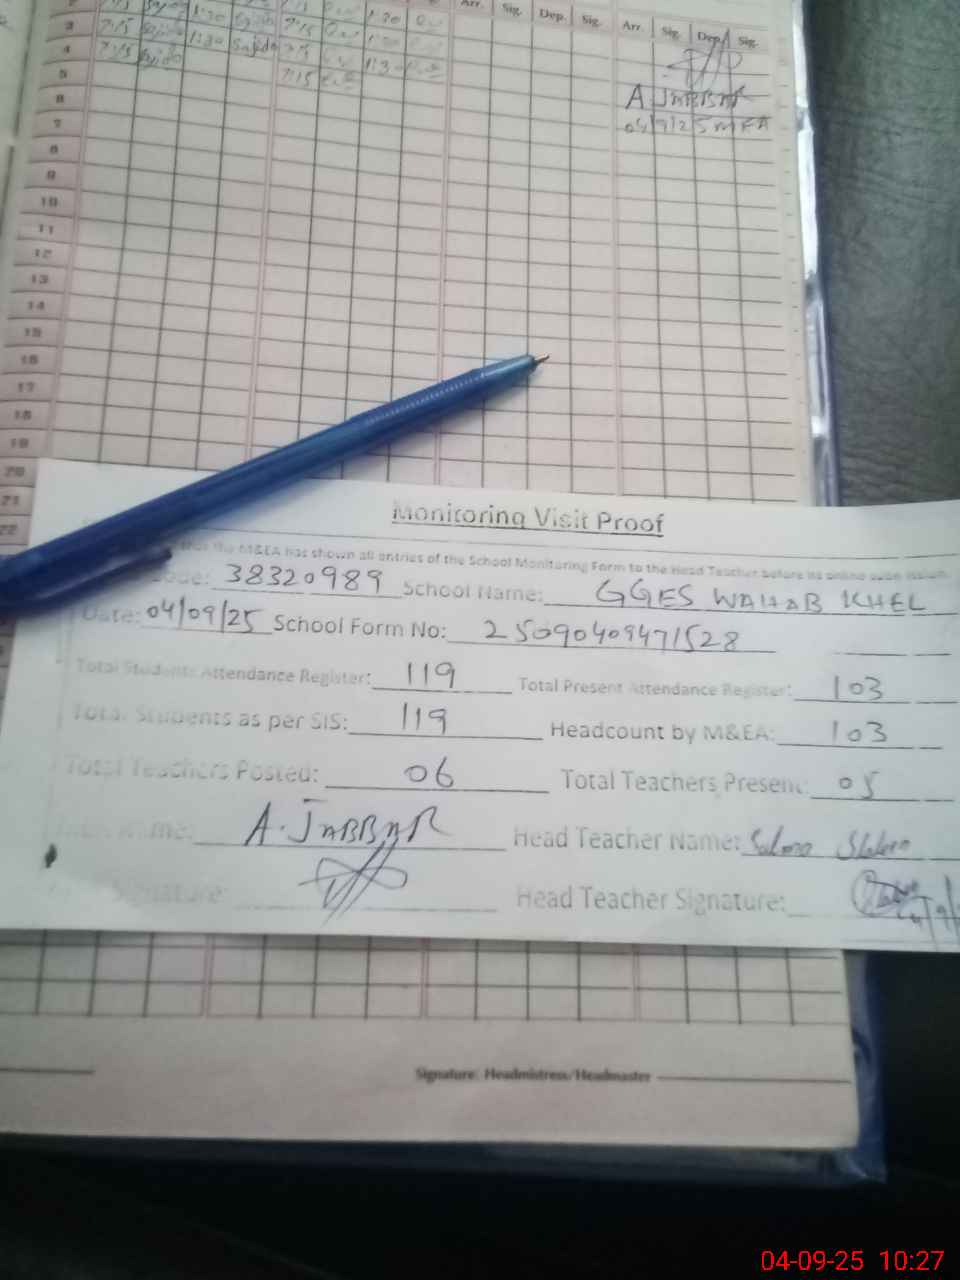 Arr. Sig. Dep. Sig. Arr. Sig. Dep. Sig.
3 7:15 1:30 7:15 1:30
4 7:15 7:15
5
6 A JABBAR
7 04/9/25 MEA
8
9
10
11
12
13
14
15
16
17
18
19
20
21
22
Monitoring Visit Proof
that the M&EA has shown all entries of the School Monitoring Form to the Head Teacher before its online submission.
Code: 38320989 School Name: GGES WAHAB KHEL
Date: 04/09/25 School Form No: 25090409471528
Total Students Attendance Register: 119 Total Present Attendance Register: 103
Total Students as per SIS: 119 Headcount by M&EA: 103
Total Teachers Posted: 06 Total Teachers Present: 05
Name: A. JABBAR Head Teacher Name:
Signature: Head Teacher Signature:
Signature: Headmistress/Headmaster
04-09-25 10:27